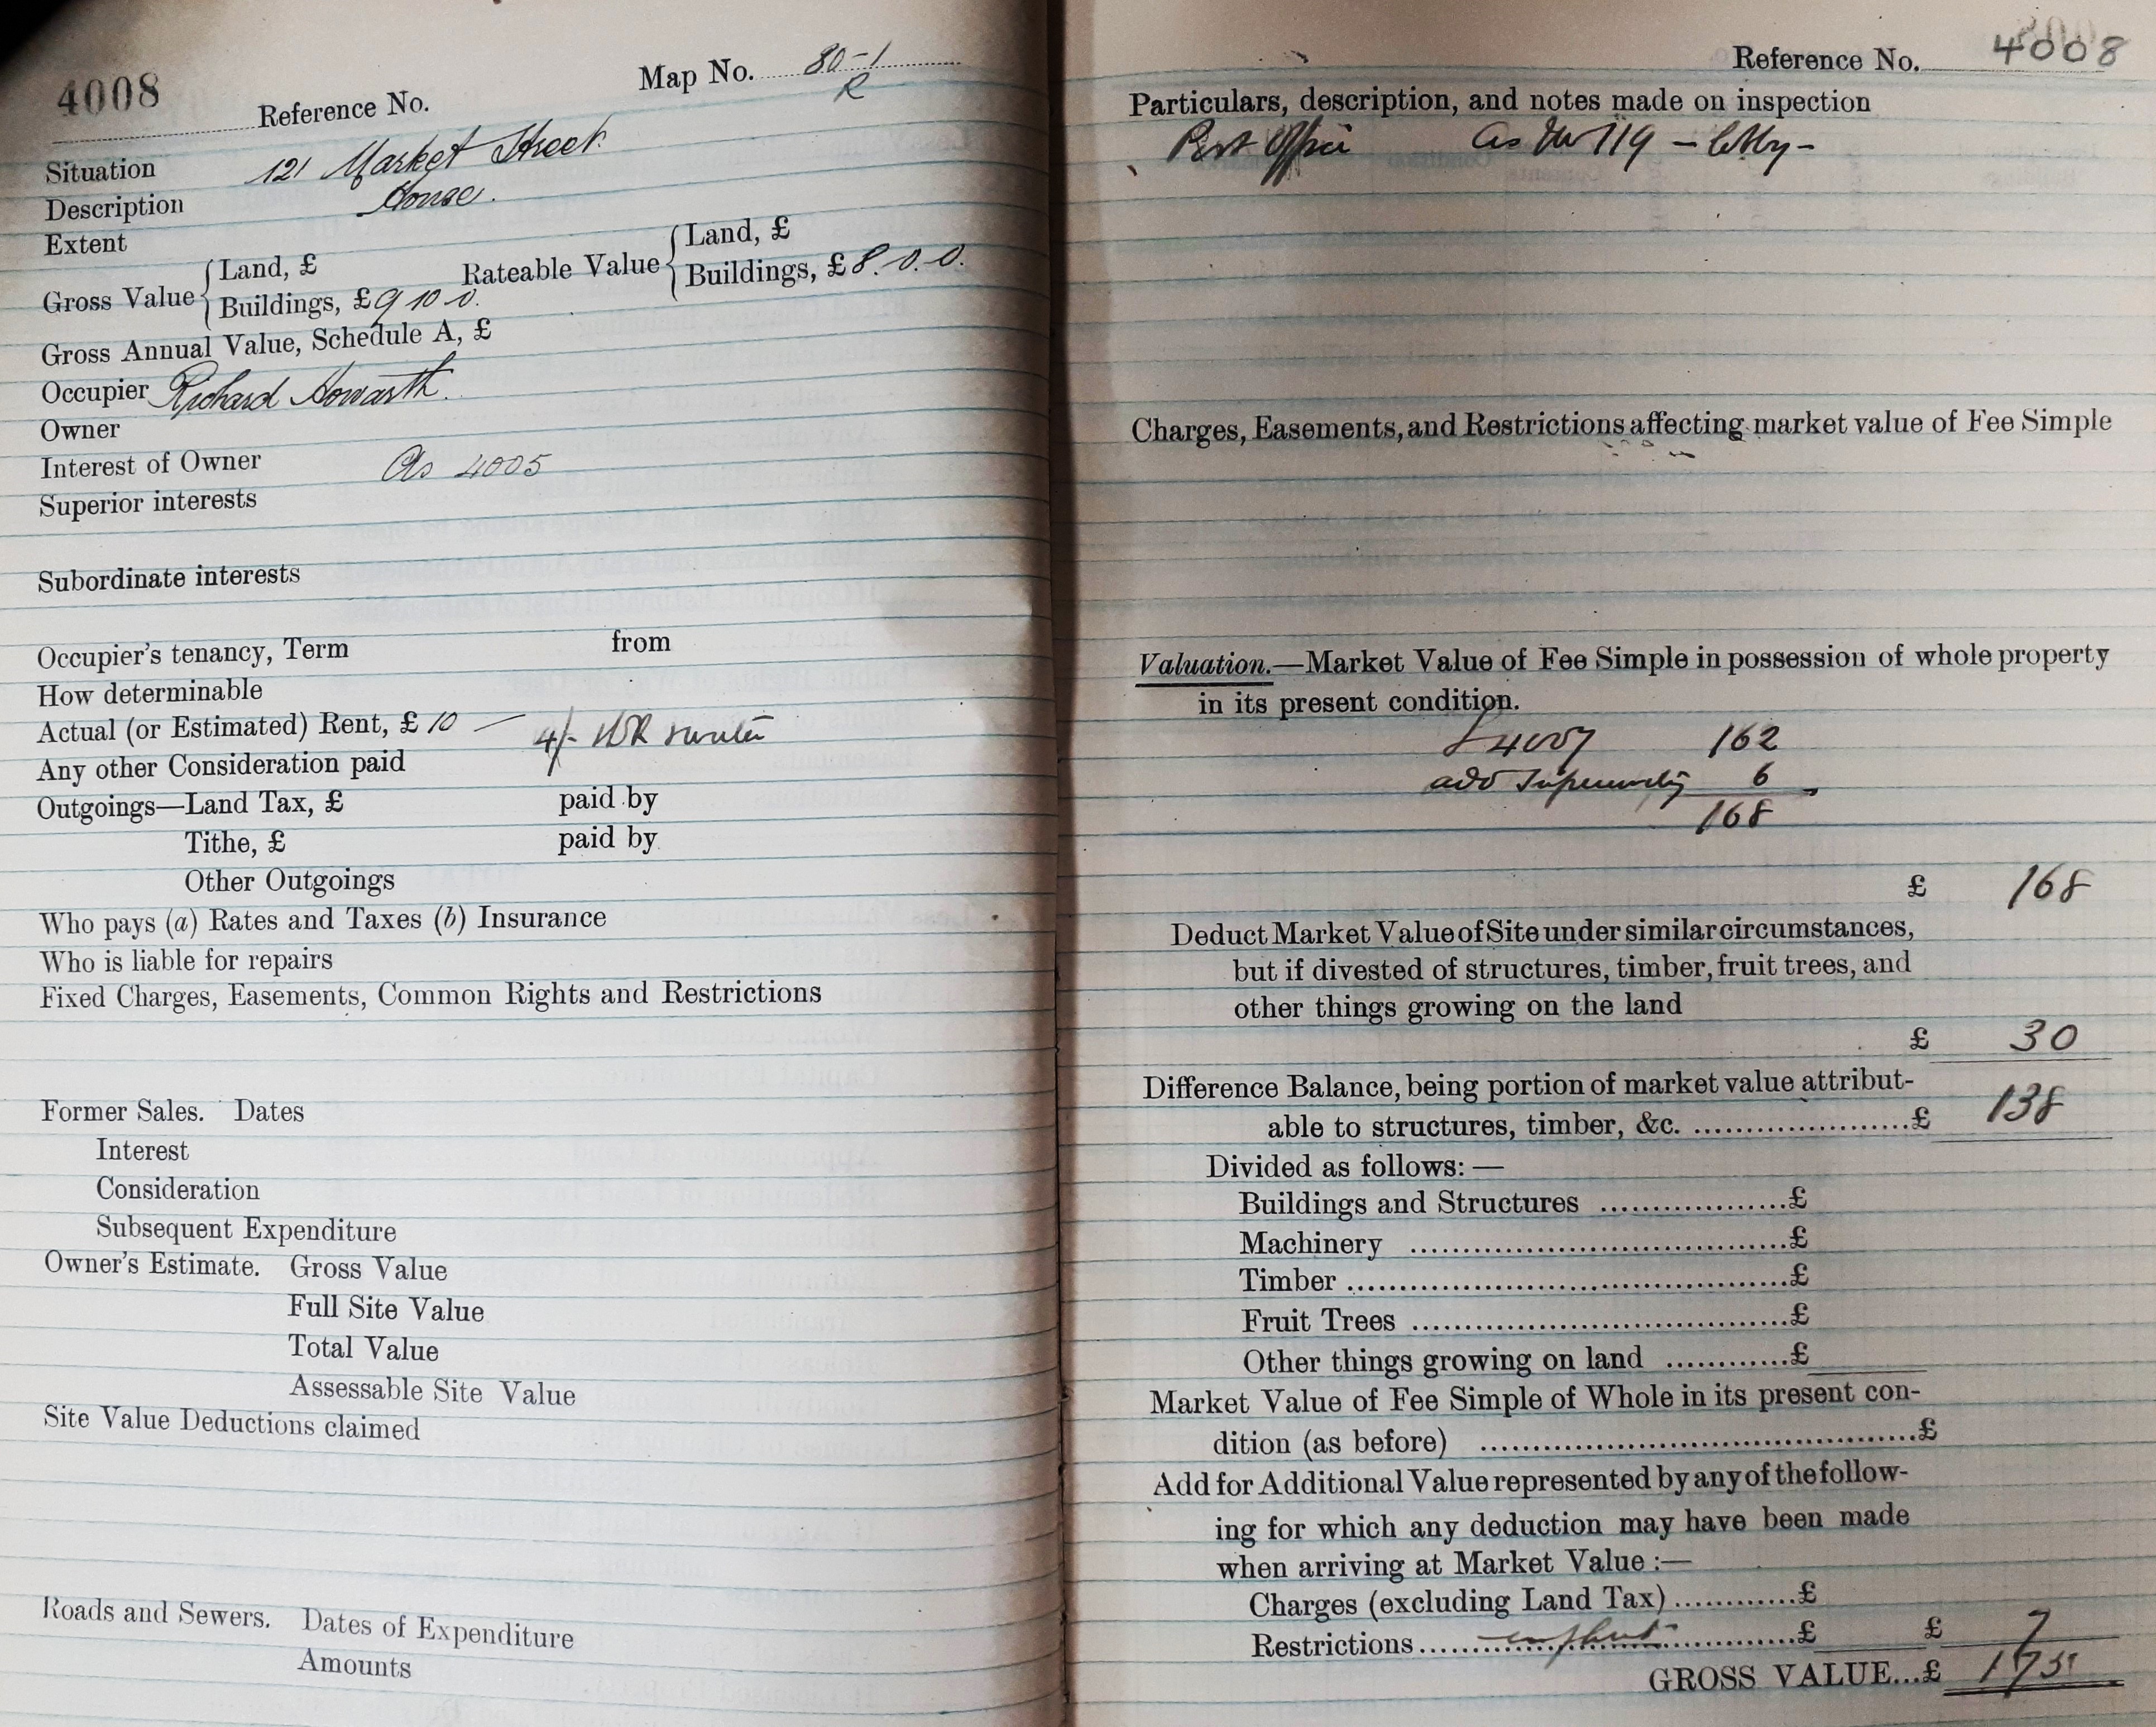 4008 Reference No. Map No. 80-1
R
Situation 121 Market Street.
Description House.
Extent
Gross Value { Land, £ Rateable Value { Land, £
Buildings, £ 9 10 0. Buildings, £ 8. 0. 0.
Gross Annual Value, Schedule A, £
Occupier Richard Howarth.
Owner
Interest of Owner As 4005
Superior interests
Subordinate interests
Occupier's tenancy, Term from
How determinable
Actual (or Estimated) Rent, £ 10 — 4/-
Any other Consideration paid
Outgoings—Land Tax, £ paid by
Tithe, £ paid by
Other Outgoings
Who pays (a) Rates and Taxes (b) Insurance
Who is liable for repairs
Fixed Charges, Easements, Common Rights and Restrictions
Former Sales. Dates
Interest
Consideration
Subsequent Expenditure
Owner's Estimate. Gross Value
Full Site Value
Total Value
Assessable Site Value
Site Value Deductions claimed
Roads and Sewers. Dates of Expenditure
Amounts
Reference No. 4008
Particulars, description, and notes made on inspection
Post Office As 119 -
Charges, Easements, and Restrictions affecting market value of Fee Simple
Valuation.—Market Value of Fee Simple in possession of whole property
in its present condition.
4007 162
add 6
168
£ 168
Deduct Market Value of Site under similar circumstances,
but if divested of structures, timber, fruit trees, and
other things growing on the land
£ 30
Difference Balance, being portion of market value attribut-
able to structures, timber, &c. ....................£ 138
Divided as follows:—
Buildings and Structures ..................£
Machinery ....................................£
Timber ..........................................£
Fruit Trees ....................................£
Other things growing on land ............£
Market Value of Fee Simple of Whole in its present con-
dition (as before) ..........................................£
Add for Additional Value represented by any of the follow-
ing for which any deduction may have been made
when arriving at Market Value :—
Charges (excluding Land Tax) ............£
Restrictions ....................................£ £ 7
GROSS VALUE...£ 175